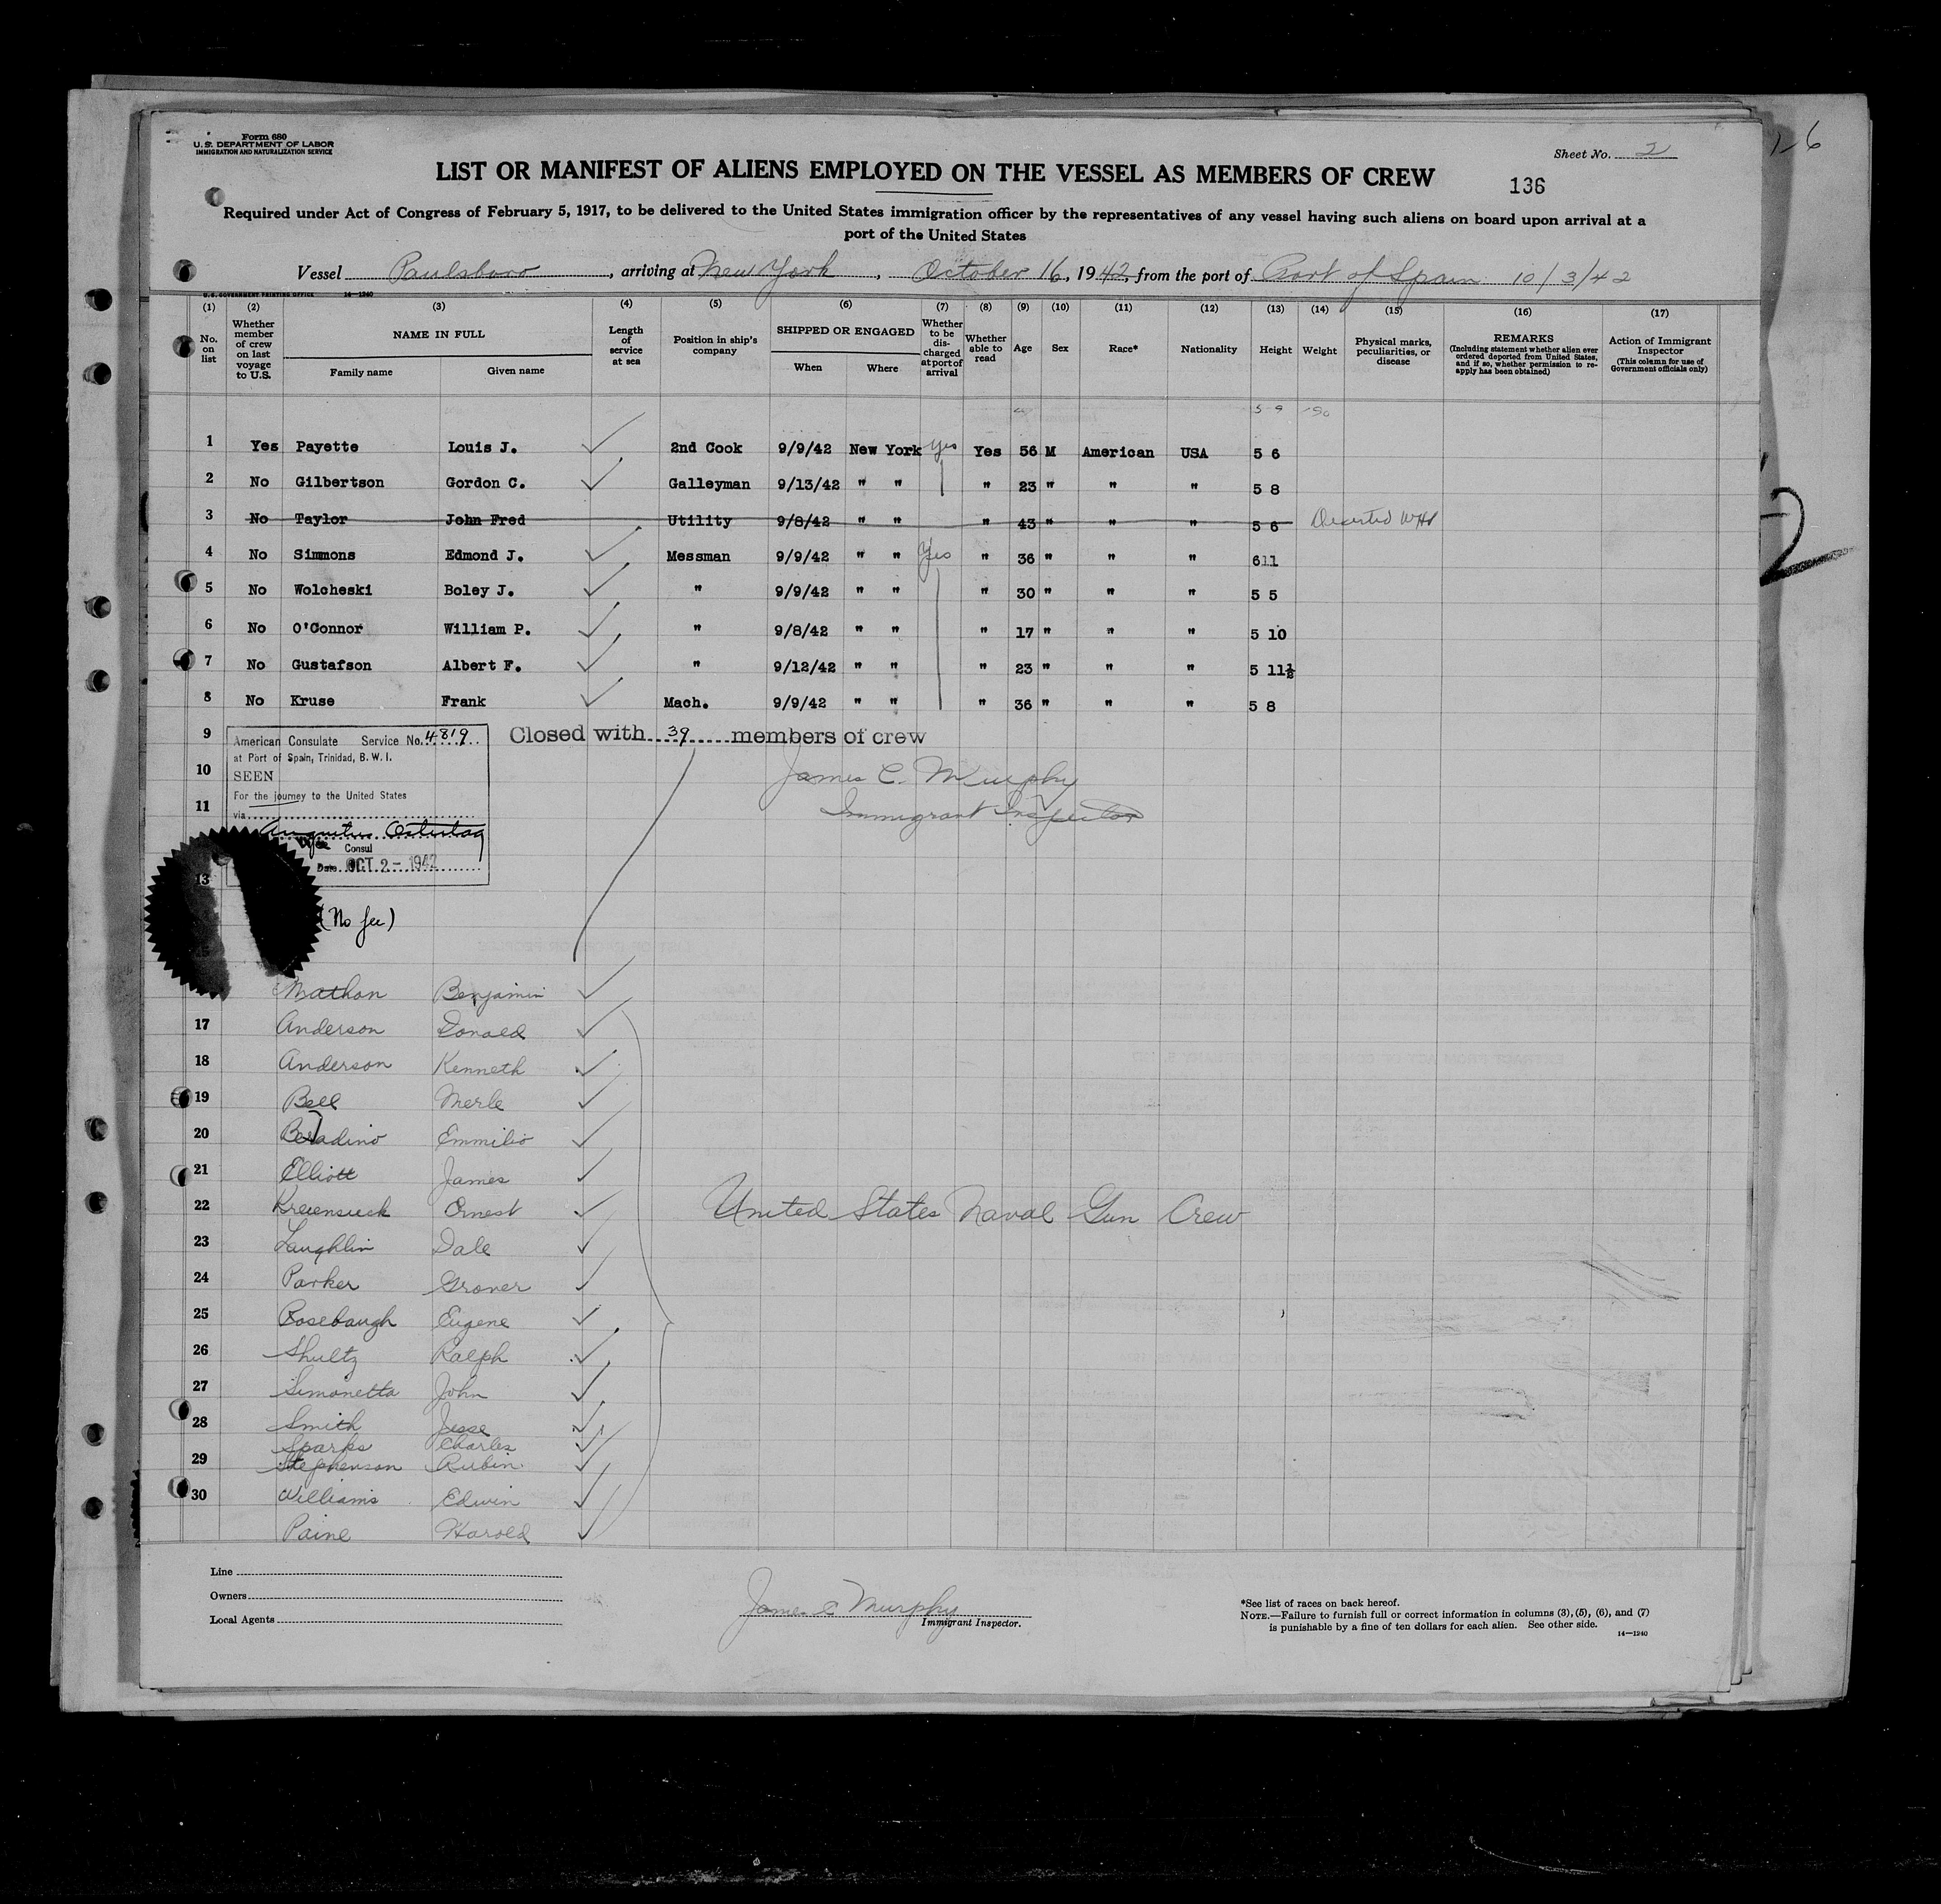 Form 680
U.S. DEPARTMENT OF LABOR
IMMIGRATION AND NATURALIZATION SERVICE
Sheet No. 2
LIST OR MANIFEST OF ALIENS EMPLOYED ON THE VESSEL AS MEMBERS OF CREW
136
Required under Act of Congress of February 5, 1917, to be delivered to the United States immigration officer by the representatives of any vessel having such aliens on board upon arrival at a
port of the United States
Vessel Paulsboro, arriving at New York, October 16, 1942, from the port of Port of Spain 10/3/42
U.S. GOVERNMENT PRINTING OFFICE 14—1240
(1) No. on list
(2) Whether member of crew on last voyage to U.S.
(3) NAME IN FULL Family name Given name
(4) Length of service at sea
(5) Position in ship's company
(6) SHIPPED OR ENGAGED When Where
(7) Whether to be discharged at port of arrival
(8) Whether able to read
(9) Age
(10) Sex
(11) Race*
(12) Nationality
(13) Height
(14) Weight
(15) Physical marks, peculiarities, or disease
(16) REMARKS (Including statement whether alien ever ordered deported from United States, and if so, whether permission to reapply has been obtained)
(17) Action of Immigrant Inspector (This column for use of Government officials only)
5 9
1 Yes Payette Louis J. 2nd Cook 9/9/42 New York Yes Yes 56 M American USA 5 6
2 No Gilbertson Gordon C. Galleyman 9/13/42 " " " 23 " " " 5 8
3 No Taylor John Fred Utility 9/8/42 " " " 43 " " " 5 6 Deserted
4 No Simmons Edmond J. Messman 9/9/42 " " Yes " 36 " " " 611
5 No Wolcheski Boley J. " 9/9/42 " " " 30 " " " 5 5
6 No O'Connor William P. " 9/8/42 " " " 17 " " " 5 10
7 No Gustafson Albert F. " 9/12/42 " " " 23 " " " 5 11½
8 No Kruse Frank Mach. 9/9/42 " " " 36 " " " 5 8
9 Closed with 39 members of crew
10 James C. Murphy
11 Immigrant Inspector
American Consulate Service No. 4819
at Port of Spain, Trinidad, B. W. I.
SEEN
For the journey to the United States
via
Augustus Ostertag
Vice Consul
Date OCT 2 - 1942
13
(No fee)
Mathon Benjamin
17 Anderson Donald
18 Anderson Kenneth
19 Bell Merle
20 Beradino Emmilio
21 Elliott James
22 Ernest
United States Naval Gun Crew
23 Laughlin Dale
24 Parker Grover
25 Rosebaugh Eugene
26 Shultz Ralph
27 Simonetta John
28 Smith Jesse
Sparks Charles
29 Stephenson Rubin
30 Williams Edwin
Paine Harold
2
Line
Owners
Local Agents
James C Murphy
Immigrant Inspector.
*See list of races on back hereof.
NOTE.—Failure to furnish full or correct information in columns (3), (5), (6), and (7)
is punishable by a fine of ten dollars for each alien. See other side.
14—1240